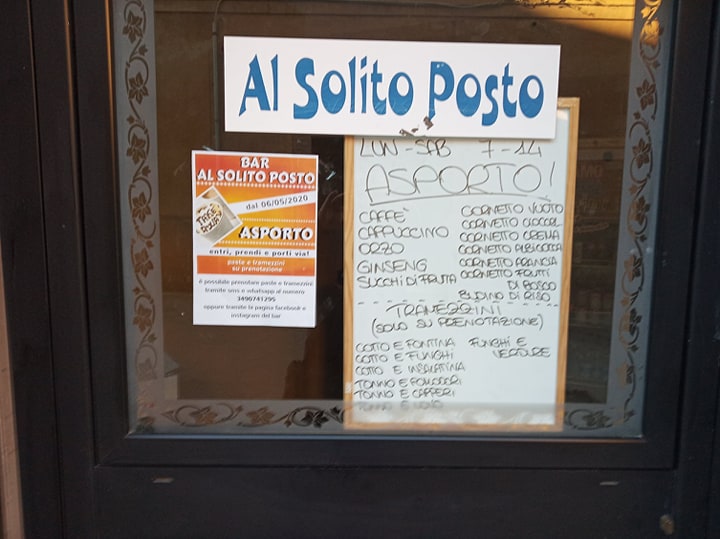 Al Solito Posto
BAR
AL SOLITO POSTO
dal 06/05/2020
TAKE
AWAY
ASPORTO
entri, prendi e porti via!
paste e tramezzini
su prenotazione
è possibile prenotare paste e tramezzini
tramite sms e whatsapp al numero
3490741295
oppure tramite la pagina facebook e
instagram del bar
LUN - SAB 7 - 14
ASPORTO!
CAFFE'
CAPPUCCINO
ORZO
GINSENG
SUCCHI DI FRUTTA
CORNETTO VUOTO
CORNETTO CIOCCOL
CORNETTO CREMA
CORNETTO ALBICOCCA
CORNETTO ARANCIA
CORNETTO FRUTTI
DI BOSCO
BUDINO DI RISO
TRAMEZZINI
(SOLO SU PRENOTAZIONE)
COTTO E FONTINA
COTTO E FUNGHI
COTTO E INSALATINA
TONNO E POMODORI
TONNO E CAPPERI
TONNO E UOVO
FUNGHI E
VERDURE